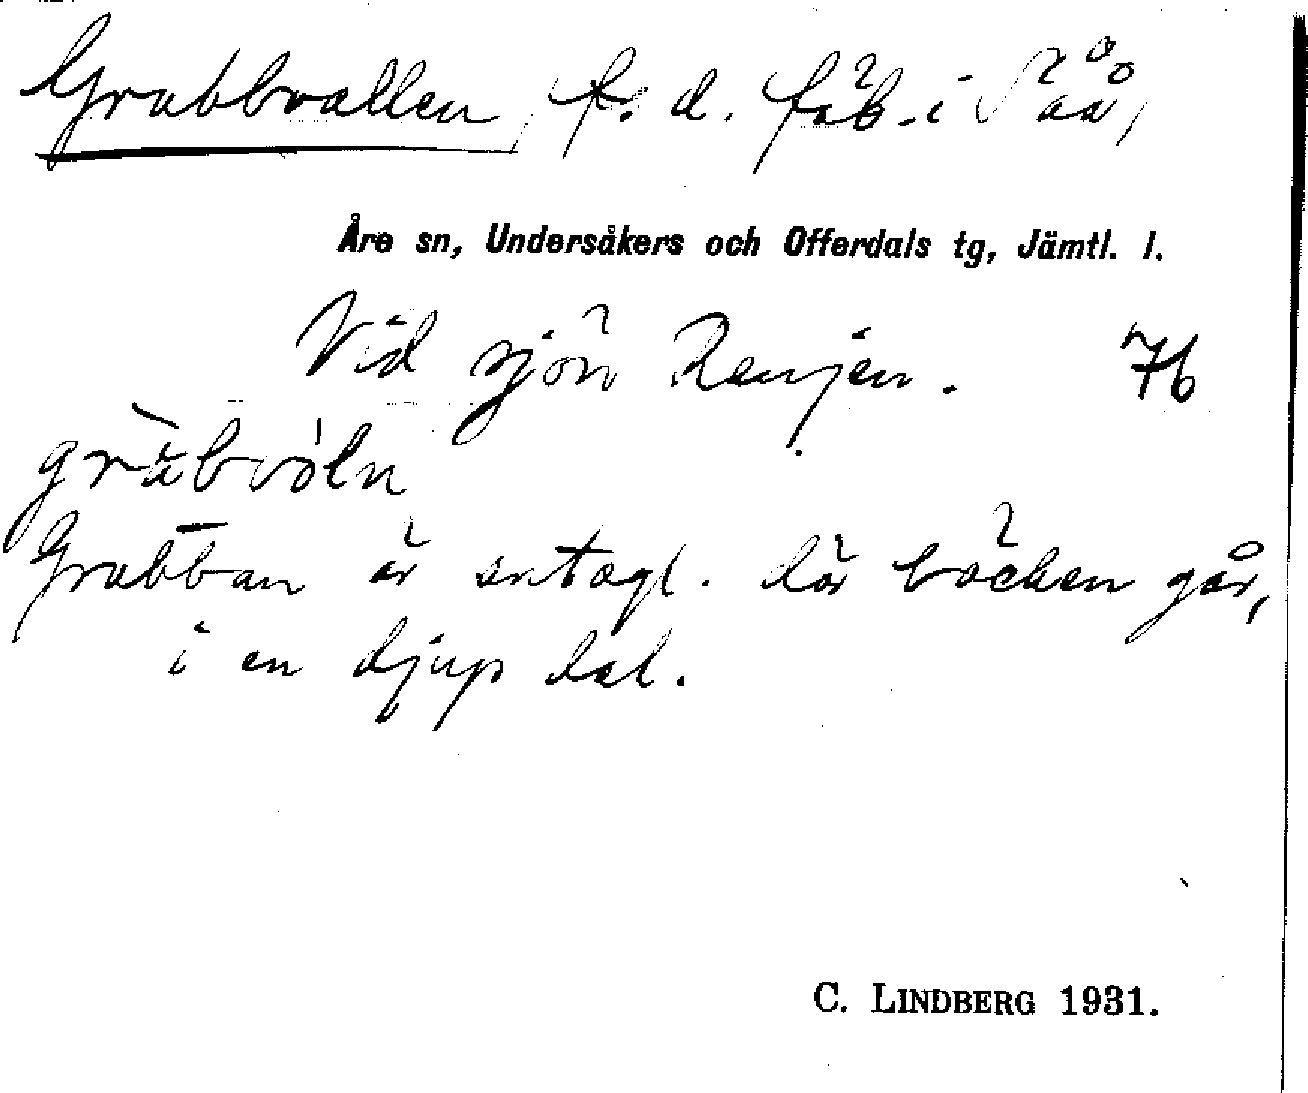 Grubbvallen, f. d. fäb. i Såå,
Åre sn, Undersåkers och Offerdals tg, Jämtl. l.
Vid sjön Renjen. 76
gràbvòln
Grubban är antagl. där bäcken går,
i en djup dal.
C. LINDBERG 1931.